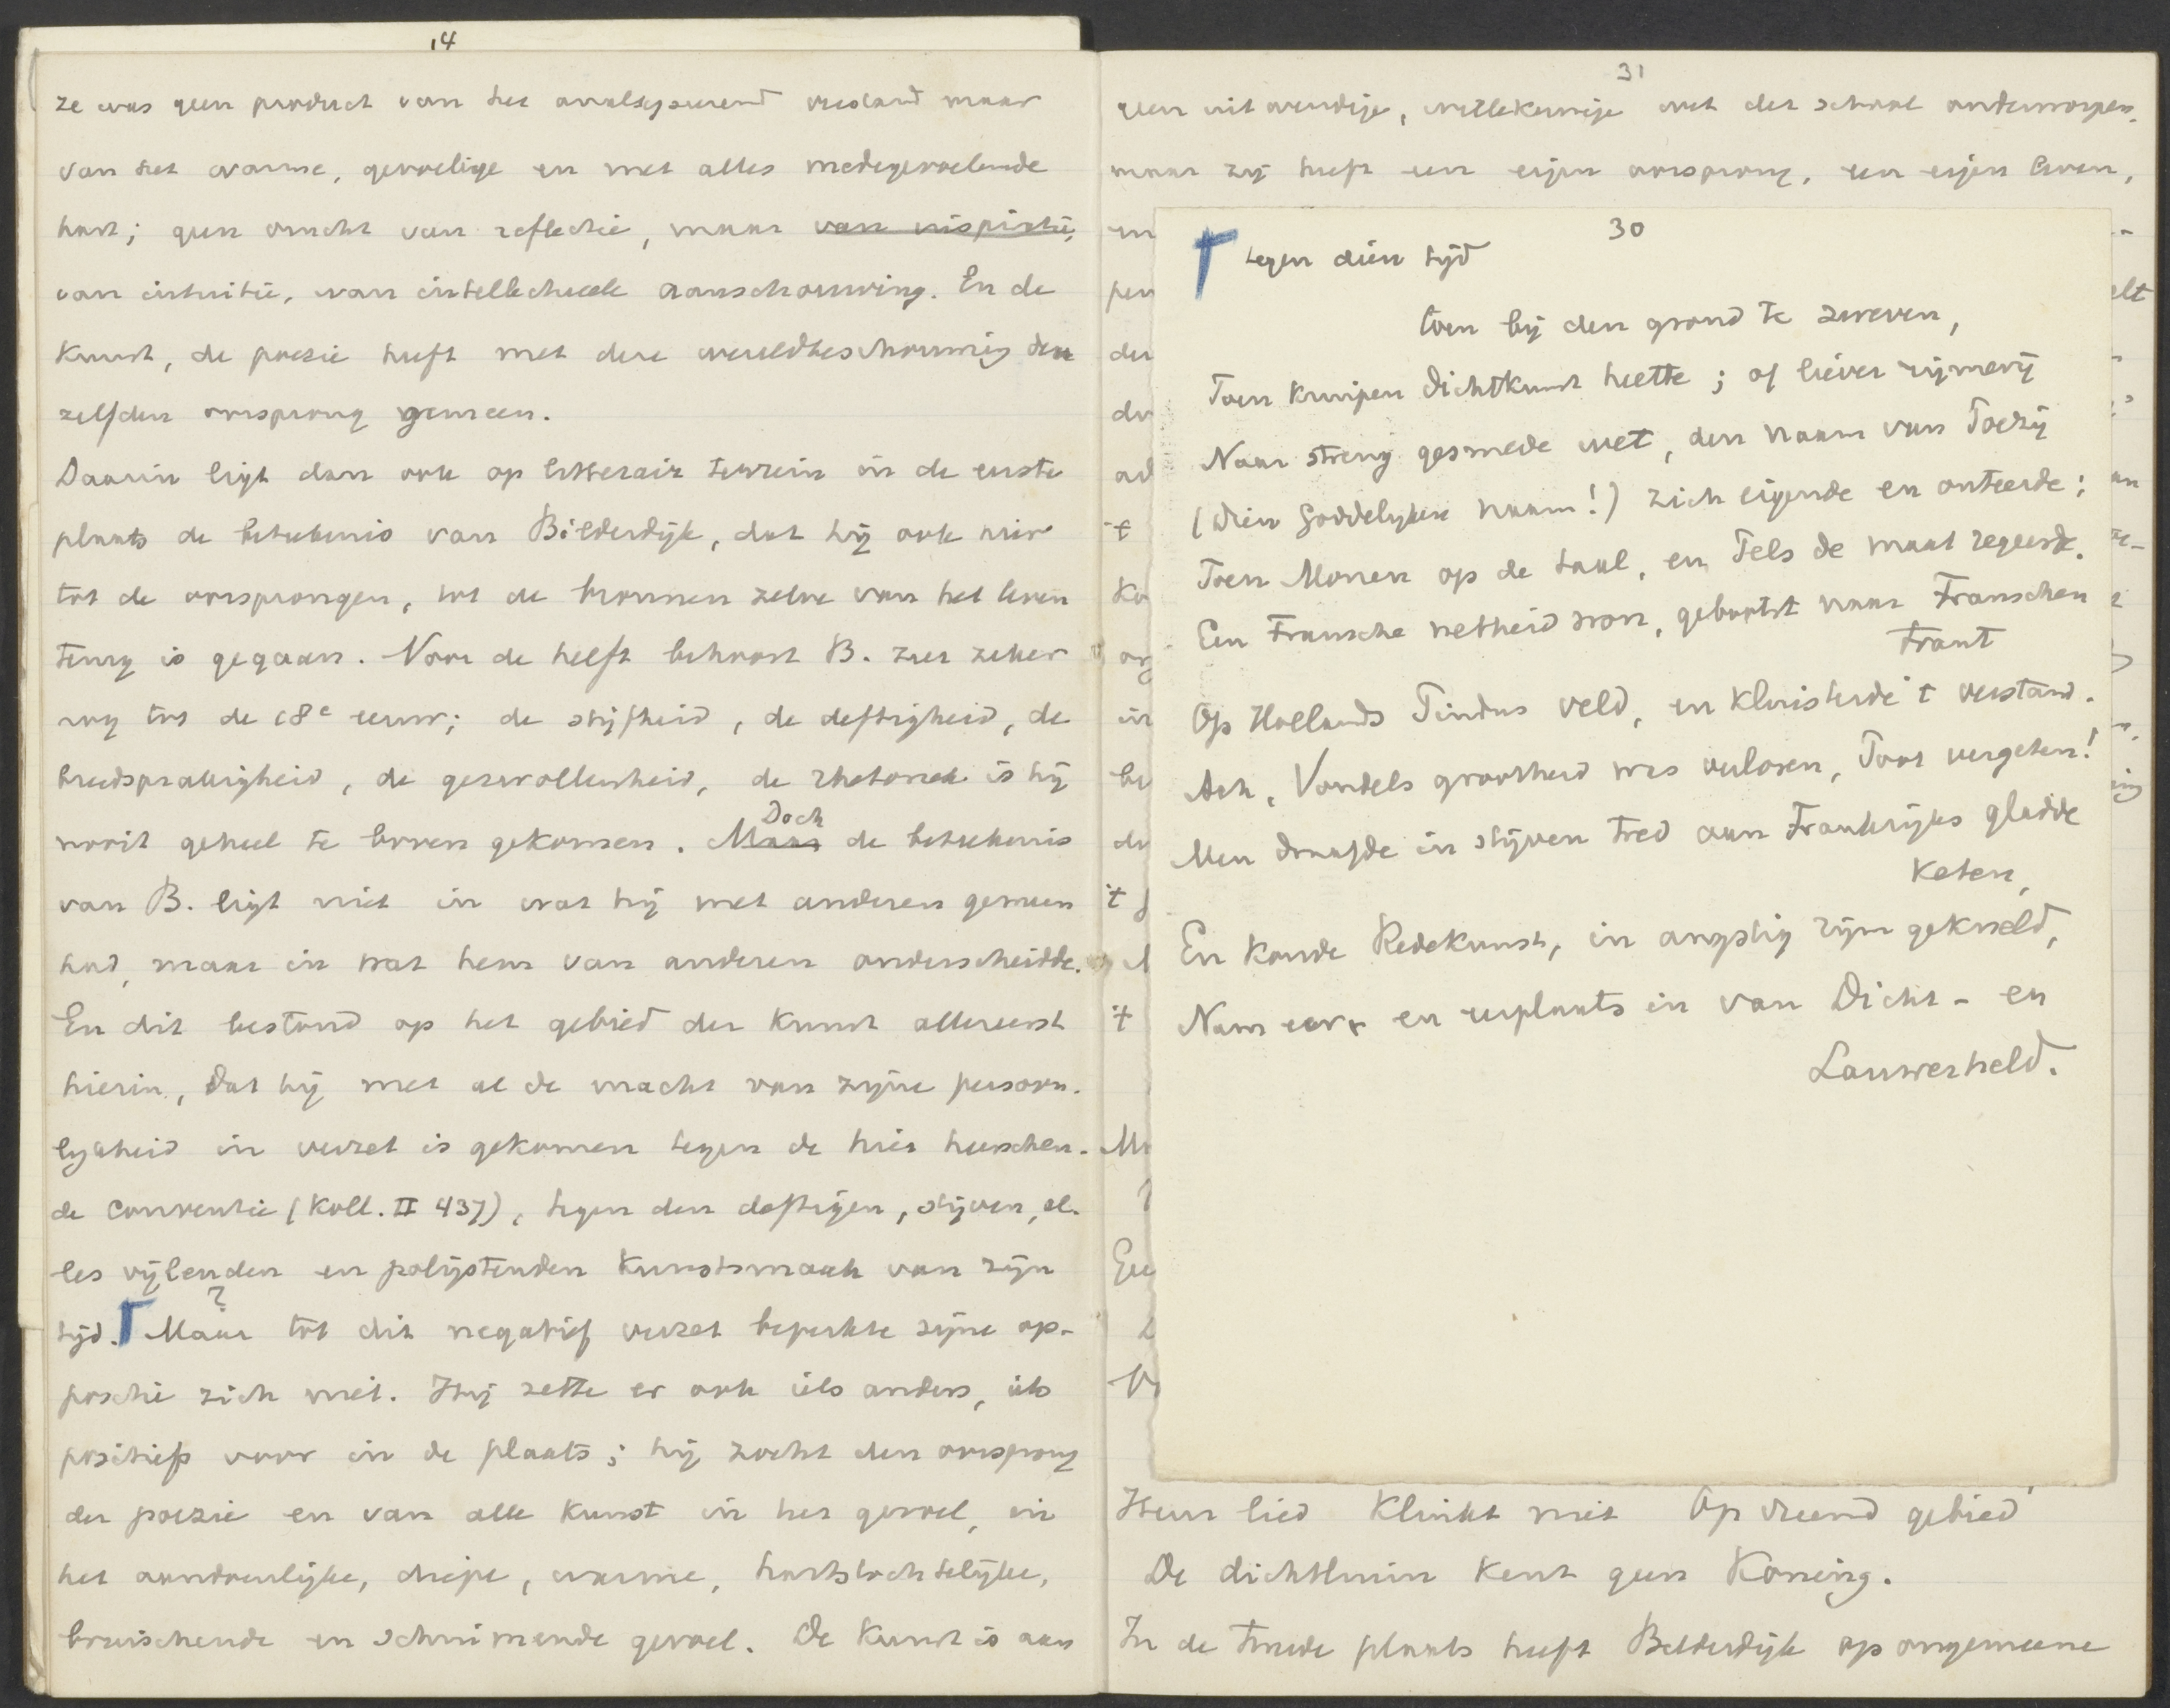 14
ze was geen product van het analyseerend verstand maar
van het warme, gevoelige en met alles medegevoelende
hart; geen vrucht van reflectie, maar van inspiratie,
van intuitie, van intellectueele aanschouwing. En de
kunst, de poezie heeft met deze wereldbeschouwing den
zelfden oorsprong gemeen.
Daarin ligt dan ook op litterair terrein in de eerste
plaats de beteekenis van Bilderdijk, dat hij ook hier
tot de oorsprongen, tot de bronnen zelve van het leven
terug is gegaan. Voor de helft behoort B. zeer zeker
nog tot de 18e eeuw; de stijfheid, de deftigheid, de
breedsprakigheid, de gezwollenheid, de rhetoriek is hij
nooit geheel te boven gekomen. Maar Doch de beteekenis
van B. ligt niet in wat hij met anderen gemeen
had, maar in wat hem van anderen onderscheidde.
En dit bestond op het gebied der kunst allereerst
hierin, dat hij met al de macht van zijne persoon-
lijkheid in verzet is gekomen tegen de hier heerschen-
de conventie (Koll. II 437), tegen den deftigen, stijven, al-
les vijlenden en polijstenden kunstsmaak van zijn
tijd. ? Maar tot dit negatief verzet beperkte zijne op-
positie zich niet. Hij zette er ook iets anders, iets
positiefs voor in de plaats; hij zocht den oorsprong
der poezie en van alle kunst in het gevoel, in
het aandoenlijke, diepe, warme, hartstochtelijke,
bruischende en schuimende gevoel. De kunst is aan
31
geen uitwendige, willekeurige wet der school onderworpen,
maar zij heeft een eigen oorsprong, een eigen leven,
30
tegen dien tijd
toen bij den grond te zweven,
Toen kruipen dichtkunst heette; of liever rijmerij
Naar streng gesmede wet, den naam van Poëzij
(Dien Goddelijken naam!) zich eigende en onteerde;
Toen Monen op de taal, en Pels de maat regeerde.
Een Fransche netheid won, gebootst naar Franschen
trant
Op Hollands Pindus veld, en kluisterde 't verstand.
Ach, Vondels grootheid was verloren, Poot vergeten!
Men draafde in stijven tred aan Frankrijks gladde
keten,
En koude Redekunst, in angstig rijm gekneld,
Nam eer en eerplaats in van Dicht- en
Lauwerheld.
Hun lied klinkt niet Op vreemd gebied
De dichtluim kent geen Koning.
In de tweede plaats heeft Bilderdijk op ongemeene